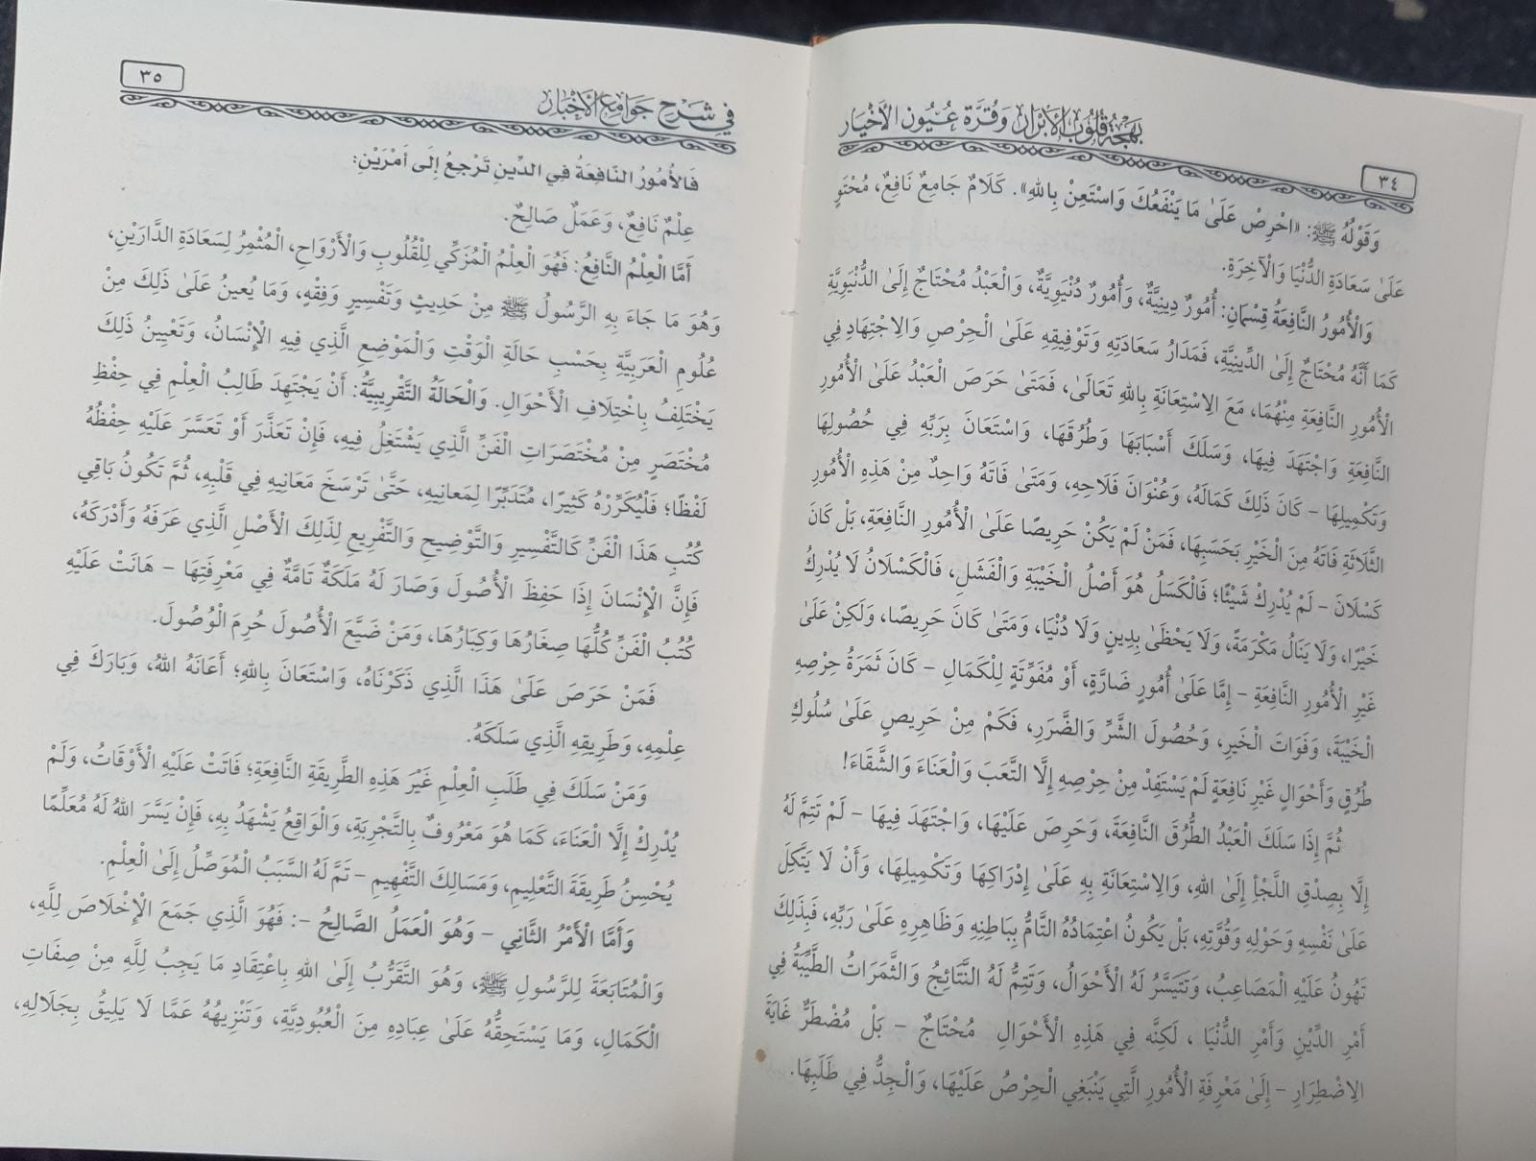 بَهْجَةُ قُلُوبِ الْأَبْرَارِ وَقُرَّةُ عُيُونِ الْأَخْيَارِ
٣٤
وَقَوْلُهُ ﷺ: «احْرِصْ عَلَىٰ مَا يَنْفَعُكَ وَاسْتَعِنْ بِاللهِ». كَلَامٌ جَامِعٌ نَافِعٌ، مُحْتَوٍ
عَلَىٰ سَعَادَةِ الدُّنْيَا وَالْآخِرَةِ.
وَالْأُمُورُ النَّافِعَةُ قِسْمَانِ: أُمُورٌ دِينِيَّةٌ، وَأُمُورٌ دُنْيَوِيَّةٌ، وَالْعَبْدُ مُحْتَاجٌ إِلَىٰ الدُّنْيَوِيَّةِ
كَمَا أَنَّهُ مُحْتَاجٌ إِلَىٰ الدِّينِيَّةِ، فَمَدَارُ سَعَادَتِهِ وَتَوْفِيقِهِ عَلَىٰ الْحِرْصِ وَالِاجْتِهَادِ فِي
الْأُمُورِ النَّافِعَةِ مِنْهُمَا، مَعَ الِاسْتِعَانَةِ بِاللهِ تَعَالَىٰ، فَمَتَىٰ حَرَصَ الْعَبْدُ عَلَىٰ الْأُمُورِ
النَّافِعَةِ وَاجْتَهَدَ فِيهَا، وَسَلَكَ أَسْبَابَهَا وَطُرُقَهَا، وَاسْتَعَانَ بِرَبِّهِ فِي حُصُولِهَا
وَتَكْمِيلِهَا – كَانَ ذَلِكَ كَمَالَهُ، وَعُنْوَانَ فَلَاحِهِ، وَمَتَىٰ فَاتَهُ وَاحِدٌ مِنْ هَذِهِ الْأُمُورِ
الثَّلَاثَةِ فَاتَهُ مِنَ الْخَيْرِ بِحَسَبِهَا، فَمَنْ لَمْ يَكُنْ حَرِيصًا عَلَىٰ الْأُمُورِ النَّافِعَةِ، بَلْ كَانَ
كَسْلَانَ – لَمْ يُدْرِكْ شَيْئًا؛ فَالْكَسَلُ هُوَ أَصْلُ الْخَيْبَةِ وَالْفَشَلِ، فَالْكَسْلَانُ لَا يُدْرِكُ
خَيْرًا، وَلَا يَنَالُ مَكْرَمَةً، وَلَا يَحْظَىٰ بِدِينٍ وَلَا دُنْيَا، وَمَتَىٰ كَانَ حَرِيصًا، وَلَكِنْ عَلَىٰ
غَيْرِ الْأُمُورِ النَّافِعَةِ – إِمَّا عَلَىٰ أُمُورٍ ضَارَّةٍ، أَوْ مُفَوِّتَةٍ لِلْكَمَالِ – كَانَ ثَمَرَةُ حِرْصِهِ
الْخَيْبَةَ، وَفَوَاتَ الْخَيرِ، وَحُصُولَ الشَّرِّ وَالضَّرَرِ، فَكَمْ مِنْ حَرِيصٍ عَلَىٰ سُلُوكِ
طُرُقٍ وَأَحْوَالٍ غَيْرِ نَافِعَةٍ لَمْ يَسْتَفِدْ مِنْ حِرْصِهِ إِلَّا التَّعَبَ وَالْعَنَاءَ وَالشَّقَاءَ!
ثُمَّ إِذَا سَلَكَ الْعَبْدُ الطُّرُقَ النَّافِعَةَ، وَحَرِصَ عَلَيْهَا، وَاجْتَهَدَ فِيهَا – لَمْ تَتِمَّ لَهُ
إِلَّا بِصِدْقِ اللَّجْأِ إِلَىٰ اللهِ، وَالِاسْتِعَانَةِ بِهِ عَلَىٰ إِدْرَاكِهَا وَتَكْمِيلِهَا، وَأَنْ لَا يَتَّكِلَ
عَلَىٰ نَفْسِهِ وَحَوْلِهِ وَقُوَّتِهِ، بَلْ يَكُونُ اعْتِمَادُهُ التَّامُّ بِبَاطِنِهِ وَظَاهِرِهِ عَلَىٰ رَبِّهِ، فَبِذَلِكَ
تَهُونُ عَلَيْهِ الْمَصَاعِبُ، وَتَتَيَسَّرُ لَهُ الْأَحْوَالُ، وَتَتِمُّ لَهُ النَّتَائِجُ وَالثَّمَرَاتُ الطَّيِّبَةُ فِي
أَمْرِ الدِّيْنِ وَأَمْرِ الدُّنْيَا ، لَكِنَّه فِي هَذِهِ الْأَحْوَالِ مُحْتَاجٌ – بَلْ مُضْطَرٌّ غَايَةَ
الِاضْطِرَارِ – إِلَىٰ مَعْرِفَةِ الْأُمُورِ الَّتِي يَنْبَغِي الْحِرْصُ عَلَيْهَا، وَالْجِدُّ فِي طَلَبِهَا.
فِي شَرْحِ جَوَامِعِ الْأَخْبَارِ
٣٥
فَالْأُمُورُ النَّافِعَةُ فِي الدِّينِ تَرْجِعُ إِلَى أَمْرَيْنِ:
عِلْمٌ نَافِعٌ، وَعَمَلٌ صَالِحٌ.
أَمَّا الْعِلْمُ النَّافِعُ: فَهُوَ الْعِلْمُ الْمُزَكِّي لِلْقُلُوبِ وَالْأَرْوَاحِ، الْمُثْمِرُ لِسَعَادَةِ الدَّارَيْنِ،
وَهُوَ مَا جَاءَ بِهِ الرَّسُولُ ﷺ مِنْ حَدِيثٍ وَتَفْسِيرٍ وَفِقْهٍ، وَمَا يُعينُ عَلَىٰ ذَلِكَ مِنْ
عُلُومِ الْعَرَبِيَّةِ بِحَسْبِ حَالَةِ الْوَقْتِ وَالْمَوْضِعِ الَّذِي فِيهِ الْإِنْسَانُ، وَتَعْيِينُ ذَلِكَ
يَخْتَلِفُ بِاخْتِلَافِ الْأَحْوَالِ. وَالْحَالَةُ التَّقْرِيبِيَّةُ: أَنْ يَجْتَهِدَ طَالِبُ الْعِلْمِ فِي حِفْظِ
مُخْتَصَرٍ مِنْ مُخْتَصَرَاتِ الْفَنِّ الَّذِي يَشْتَغِلُ فِيهِ، فَإِنْ تَعَذَّرَ أَوْ تَعَسَّرَ عَلَيْهِ حِفْظُهُ
لَفْظًا؛ فَلْيُكَرِّرْهُ كَثِيرًا، مُتَدَبِّرًا لِمَعانِيهِ، حَتَّىٰ تَرْسَخَ مَعَانِيهِ فِي قَلْبِهِ، ثُمَّ تَكُونُ بَاقِي
كُتُبِ هَذَا الْفَنِّ كَالتَّفْسِيرِ وَالتَّوْضِيحِ وَالتَّفْرِيعِ لِذَلِكَ الْأَصْلِ الَّذِي عَرَفَهُ وَأَدْرَكَهُ،
فَإِنَّ الْإِنْسَانَ إِذَا حَفِظَ الْأُصُولَ وَصَارَ لَهُ مَلَكَةٌ تَامَّةٌ فِي مَعْرِفَتِهَا – هَانَتْ عَلَيْهِ
كُتُبُ الْفَنِّ كُلُّهَا صِغَارُهَا وَكِبَارُهَا، وَمَنْ ضَيَّعَ الْأُصُولَ حُرِمَ الْوُصُولَ.
فَمَنْ حَرَصَ عَلَىٰ هَذَا الَّذِي ذَكَرْنَاهُ، وَاسْتَعَانَ بِاللهِ؛ أَعَانَهُ اللهُ، وَبَارَكَ فِي
عِلْمِهِ، وَطَرِيقِهِ الَّذِي سَلَكَهُ.
وَمَنْ سَلَكَ فِي طَلَبِ الْعِلْمِ غَيْرَ هَذِهِ الطَّرِيقَةِ النَّافِعَةِ؛ فَاتَتْ عَلَيْهِ الْأَوْقَاتُ، وَلَمْ
يُدْرِكْ إِلَّا الْعَنَاءَ، كَمَا هُوَ مَعْرُوفٌ بِالتَّجْرِبَةِ، وَالْوَاقِعُ يَشْهَدُ بِهِ، فَإِنْ يَسَّرَ اللهُ لَهُ مُعَلِّمًا
يُحْسِنُ طَرِيقَةَ التَّعْلِيمِ، وَمَسَالِكَ التَّفْهِيمِ – تَمَّ لَهُ السَّبَبُ الْمُوَصِّلُ إِلَىٰ الْعِلْمِ.
وَأَمَّا الْأَمْرُ الثَّانِي – وَهُوَ الْعَمَلُ الصَّالِحُ –: فَهُوَ الَّذِي جَمَعَ الْإِخْلَاصَ لِلَّهِ،
وَالْمُتَابَعَةَ لِلرَّسُولِ ﷺ، وَهُوَ التَّقَرُّبُ إِلَىٰ اللهِ بِاعْتِقَادِ مَا يَجِبُ لِلَّهِ مِنْ صِفَاتِ
الْكَمَالِ، وَمَا يَسْتَحِقُّهُ عَلَىٰ عِبَادِهِ مِنَ الْعُبُودِيَّةِ، وَتَنْزِيهُهُ عَمَّا لَا يَلِيقُ بِجَلَالِهِ،